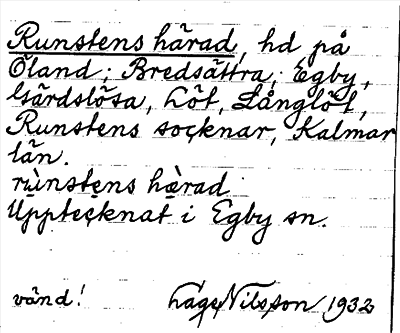 Runstens härad, hd på
Öland; Bredsättra, Egby,
Gärdslösa, Löt, Långlöt,
Runstens socknar, Kalmar
län.
rùnstens hàrad
Upptecknat i Egby sn.
vänd! Lage Nilsson 1932